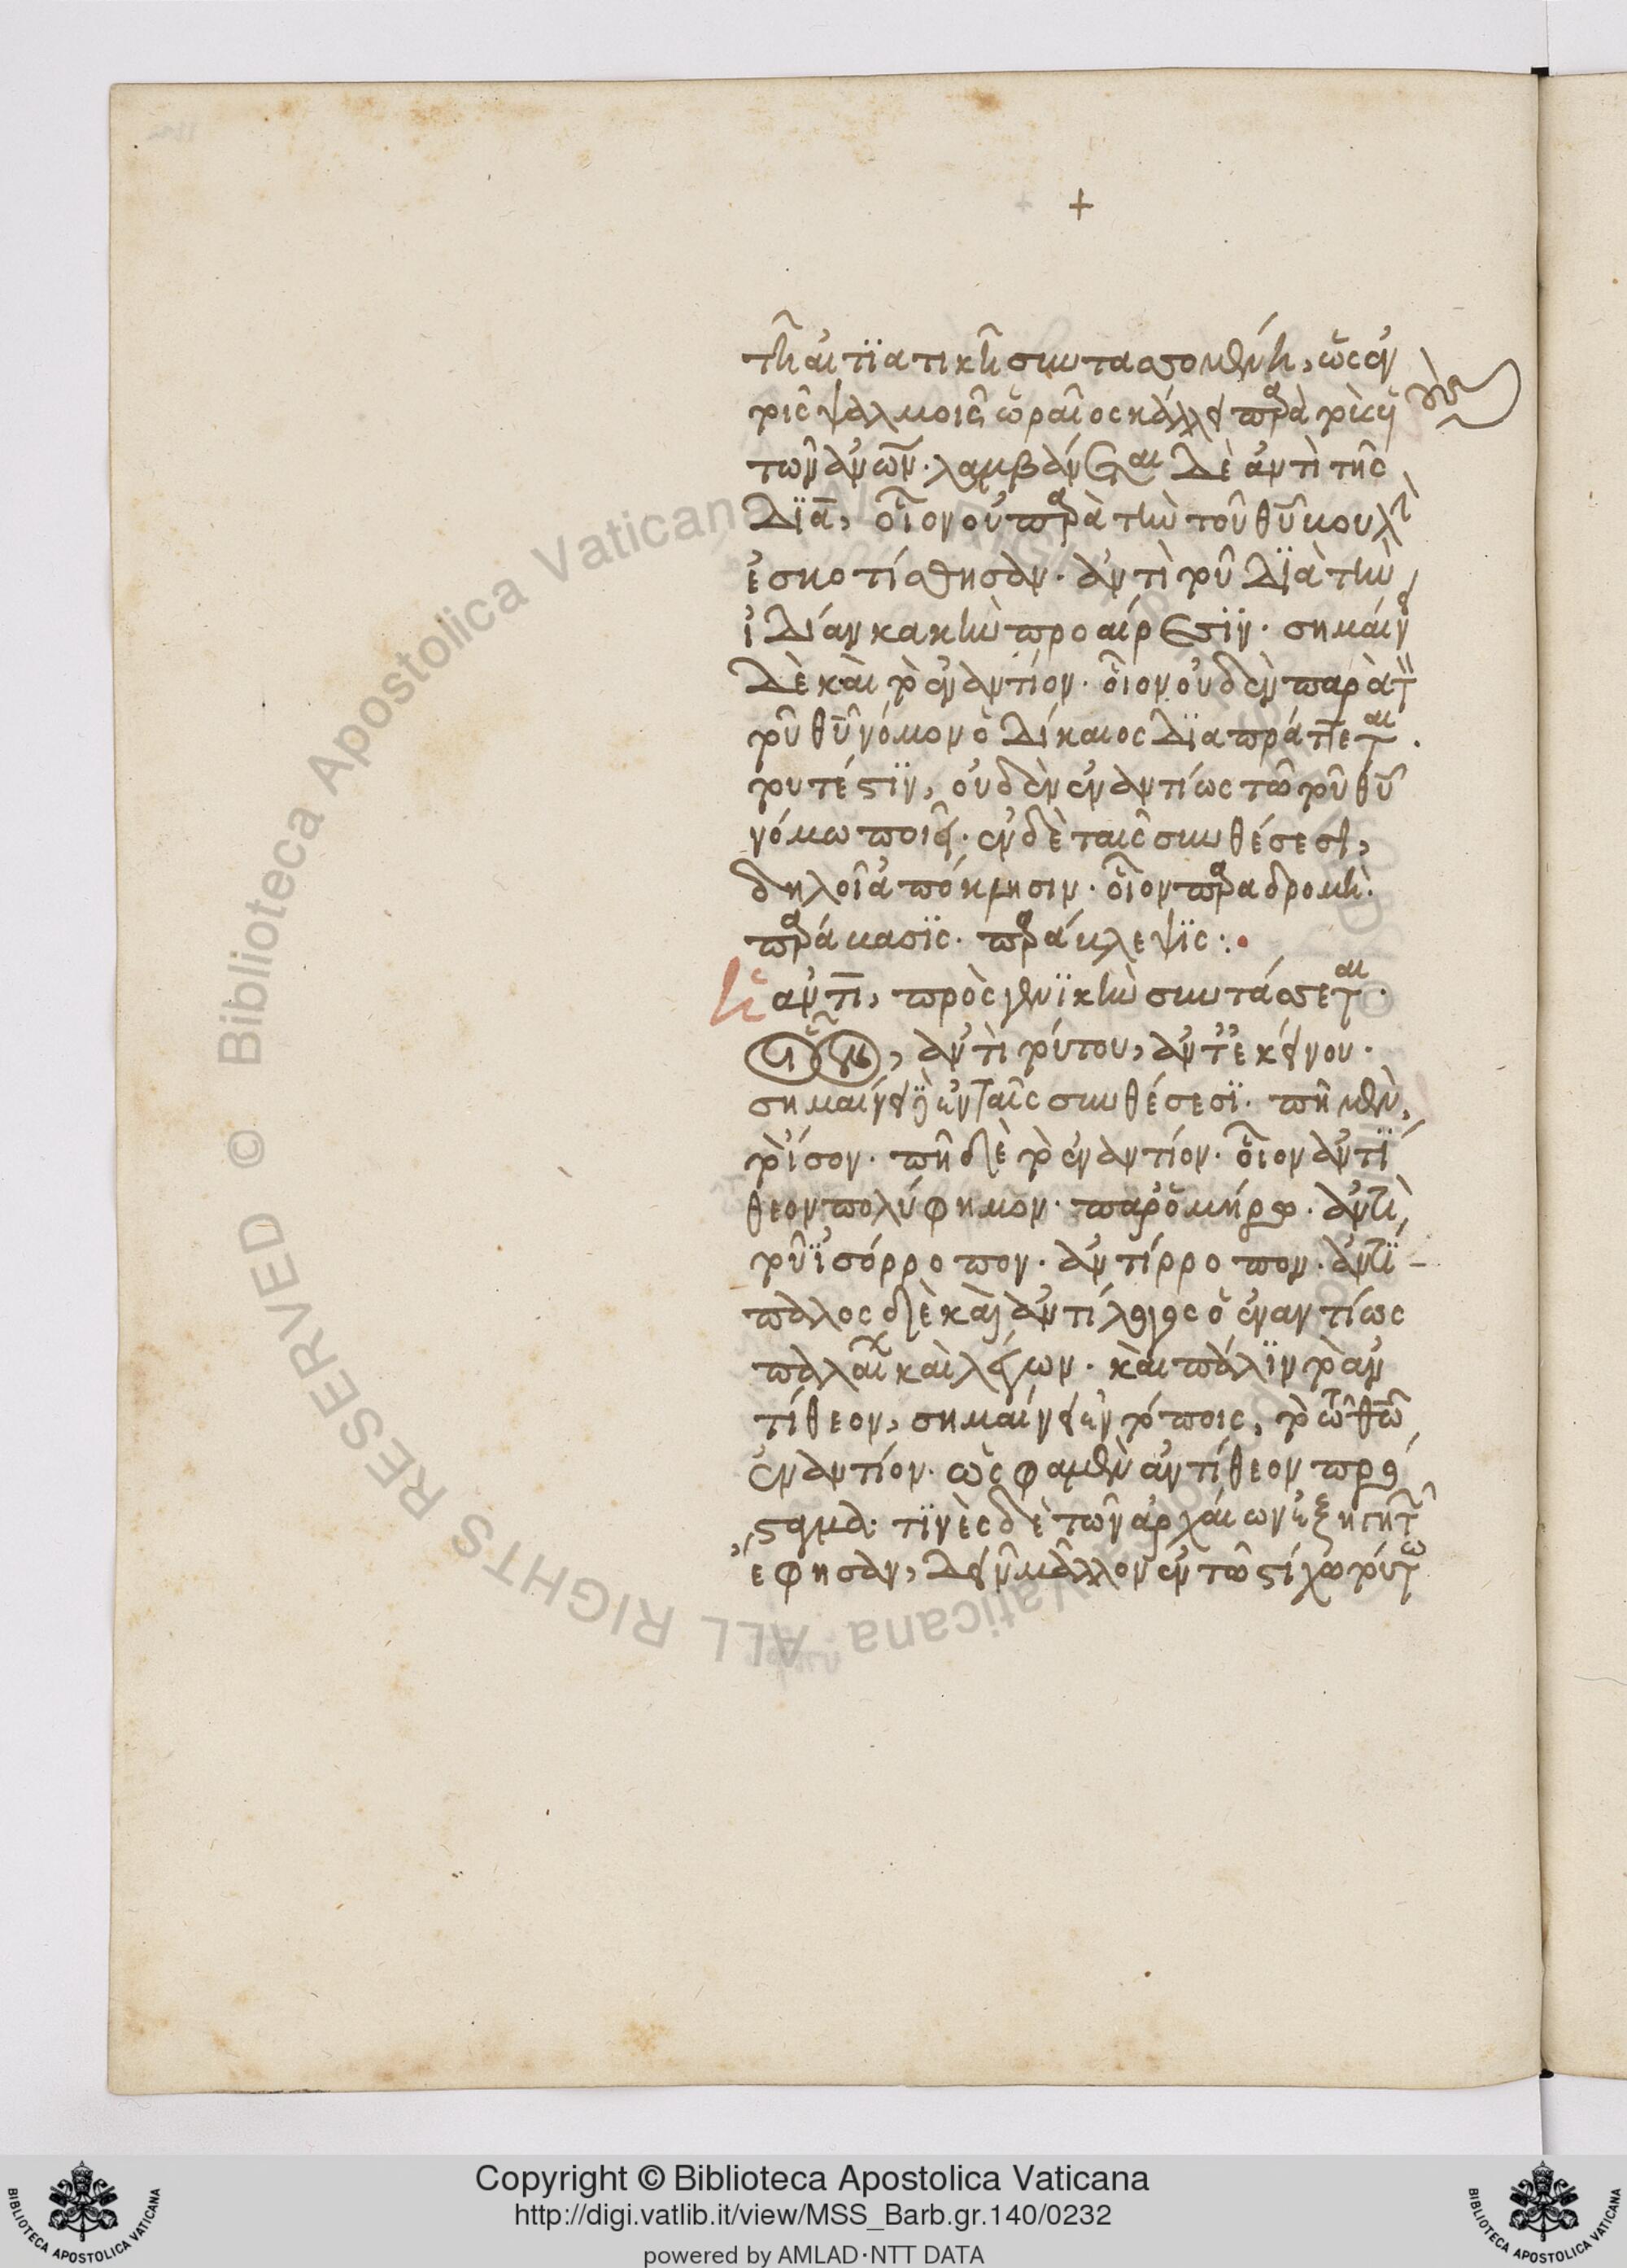 +
τῆ αἰτϊατικῆ συντασσομένη, ὡς ἐν
τοῖς ψαλμοῖς ὡραῖος κάλλει παρὰ τοὺς υἱοὺς
τῶν ἀνῶν. λαμβάνεται δὲ ἀντὶ τῆς
Δϊὰ, οἷον οὐ παρὰ τὴν τοῦ θῦ βουλὴν
ἐσκοτίσθησαν. ἀντὶ τοῦ Δϊὰ τὴν
ἰδίαν κακὴν προαίρεσϊν. σημαίνει
Δὲ καὶ τὸ ἐναντίον. οἷον οὐδὲν παρὰ τὸν
τοῦ θῦ νόμον ὁ Δίκαιος Δϊαπράττεται.
τουτέστϊν, οὐδὲν ἐναντίως τῶ τοῦ θῦ
νόμω ποιεῖ. ἐν δὲ ταῖς συνθέσεσι,
δηλοῖ ἀπόκρισιν. οἷον παραδρομὴ.
παράβασϊς. παράβλεψϊς:
Ἡ ἀντὶ, πρὸς γενϊκὴν συντάσσεται.
οἷον, ἀντὶ τούτου, ἀντ' ἐκείνου.
σημαίνει δὲ ἐν ταῖς συνθέσεσϊ. πῆ μὲν,
τὸ ἴσον. πῆ δὲ τὸ ἐναντίον. οἷον ἀντϊ
θεον πολύφημον. παρ' ὁμήρω. ἀντὶ
τοῦ ϊσόρροπον. ἀντίρροπον. ἀντϊ-
παλος δὲ καὶ ἀντίλογος ὁ ἐναντίως
παλαίων καὶ λέγων. καὶ πάλϊν τὸ ἀν
τίθεον, σημαίνει ἐν τόποις, τὸ τῶ θῶ
ἐναντίον. ὡς φαμὲν ἀντίθεον πρό
σταγμα. τϊνὲς δὲ τῶν ἀρχαίων ἐξηγητῶν
ἔφησαν, Δεῖν μᾶλλον ἐν τῶ στίχω τούτω